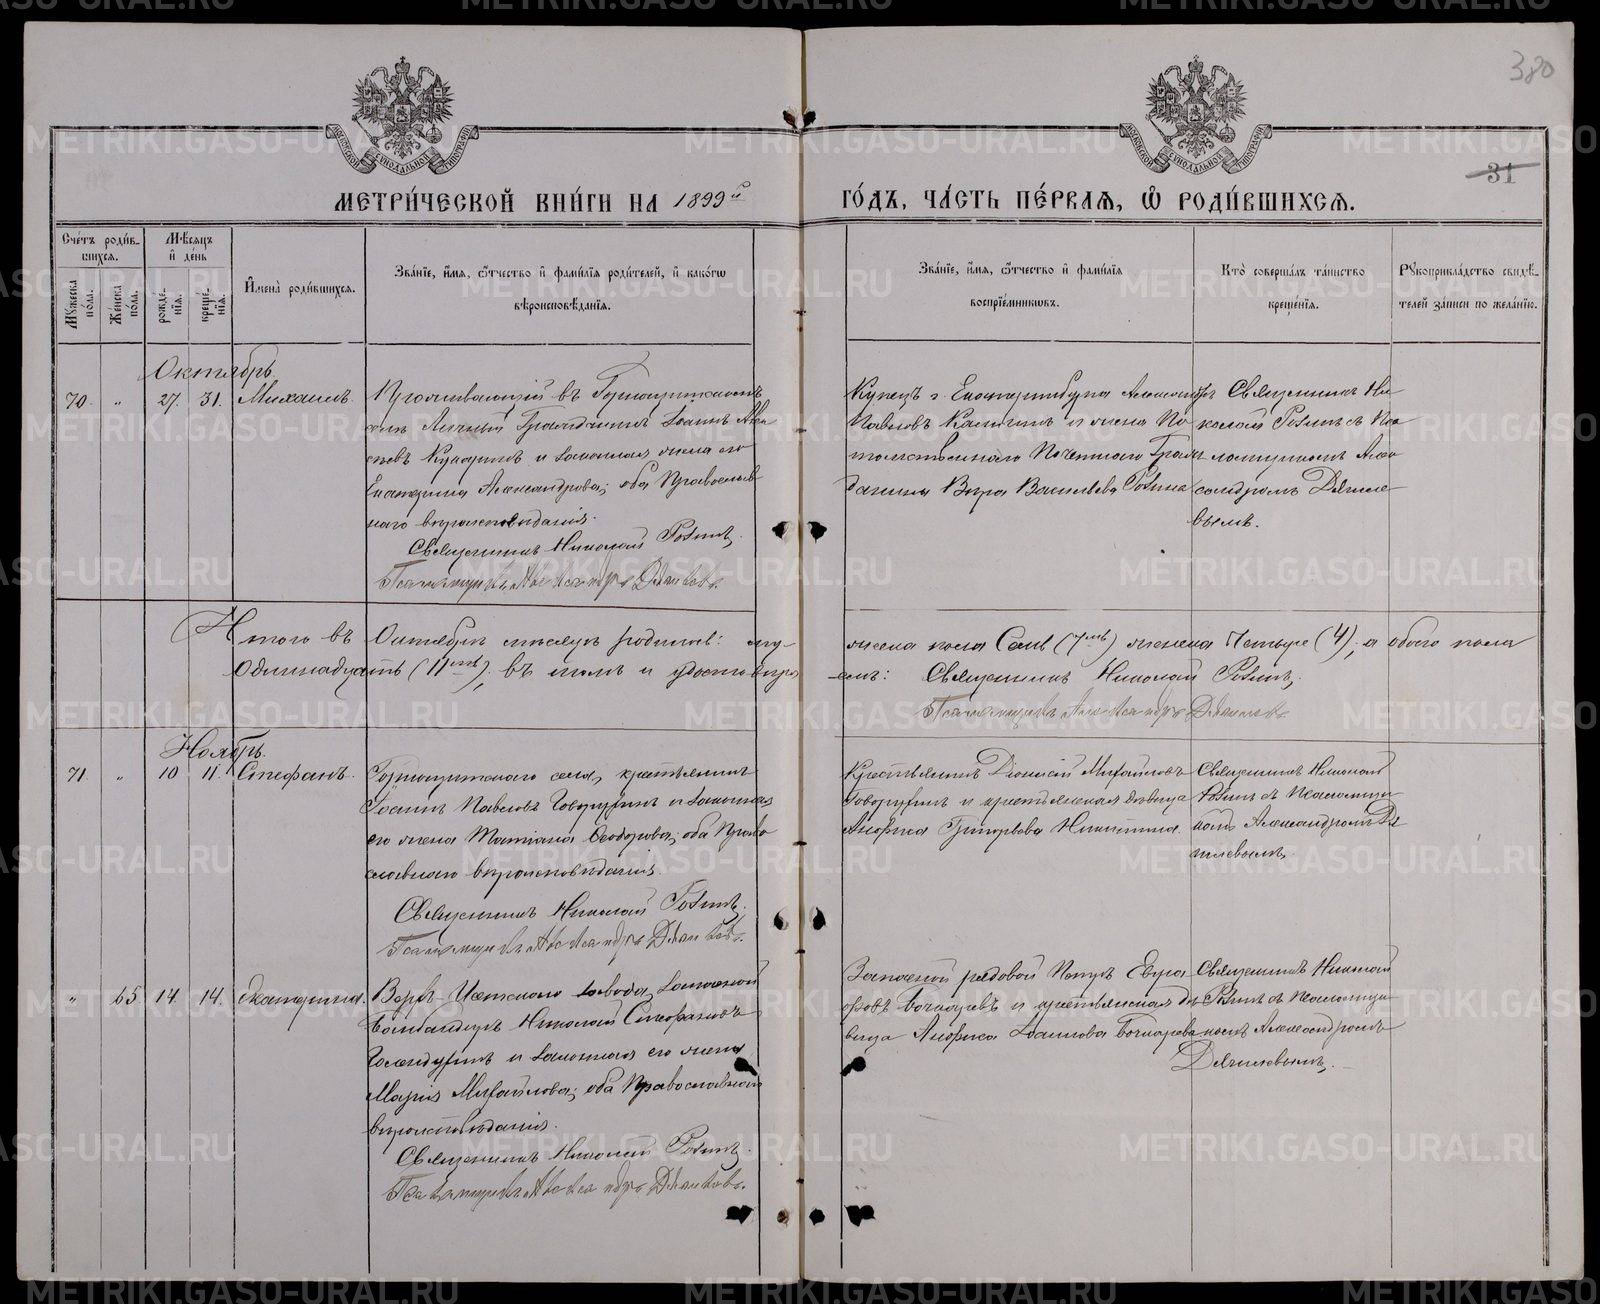 380
31
МЕТРИ́ЧЕСКОЙ КНИ́ГИ НА 1899й ГО́ДЪ, ЧА́СТЬ ПЕ́РВАЯ, Ѽ РОДИ́ВШИХСЯ.
Сче́тъ роди́в-
шихся.
Му́жеска по́ла.
Же́нска по́ла.
Мѣ́сяцъ
и҆ де́нь
рожде́-
нїя.
креще́-
нїя.
И҆мена̀ роди́вшихся.
Зва́нїе, и҆́мя, ѻ҆́тчество и҆ фами́лїя роди́телей, и҆ како́гѡ
вѣроисповѣ́данїя.
Зва́нїе, и҆́мя, ѻ҆́тчество и҆ фами́лїя
воспрїе́мниковъ.
Кто̀ соверша́лъ та́инство
креще́нїя.
Рꙋкоприкла́дство свидѣ́-
телей за́писи по жела́нїю.
Октябрь.
70. " 27. 31. Михаилъ.
Проживающій въ Горнощитскомъ
селѣ Личный Гражданинъ Іоаннъ
и законная жена его
Екатерина Александрова; оба Православ-
наго вѣроисповѣданія.
Священникъ Николай
Псаломщикъ Александръ
Купецъ г. Екатеринбурга Александръ
Павловъ и жена По-
томственнаго Почетнаго Граж-
данина Вѣра Васильева
Священникъ Ни-
колай съ Пса-
ломщикомъ Алек-
сандромъ Дягиле-
вымъ.
Итого въ Октябрѣ мѣсяцѣ родилось: му-
жеска пола Семь (7мь) женска Четыре (4), а обоего пола
Одиннадцать (11ть), въ томъ и удостовѣря-
емъ: Священникъ Николай
Псаломщикъ Александръ
Ноябрь.
71. " 10 11. Стефанъ.
Горнощитскаго села, крестьянинъ
Іоаннъ Павловъ Говорухинъ и законная
его жена Татіана Ѳеодорова; оба Право-
славнаго вѣроисповѣданія.
Священникъ Николай
Псаломщикъ Александръ
Крестьянинъ Діонисій Михайловъ
Говорухинъ и крестьянская дѣвица
Анфиса Григорьева Никитина.
Священникъ Николай
съ Псаломщи-
комъ Александромъ Дя-
гилевымъ.
" 65 14. 14. Екатерина.
Верхъ-Исетскаго завода, запасной
Бомбардиръ Николай Стефановъ
и законная его жена
Марія Михайлова; оба Православнаго
вѣроисповѣданія.
Священникъ Николай
Псаломщикъ Александръ
Запасной рядовой Петръ
Бочкаревъ и крестьянская дѣ-
вица Анфиса Іоаннова Бочкарева
Священникъ Николай
съ Псаломщи-
комъ Александромъ
Дягилевымъ.
METRIKI.GASO-URAL.RU